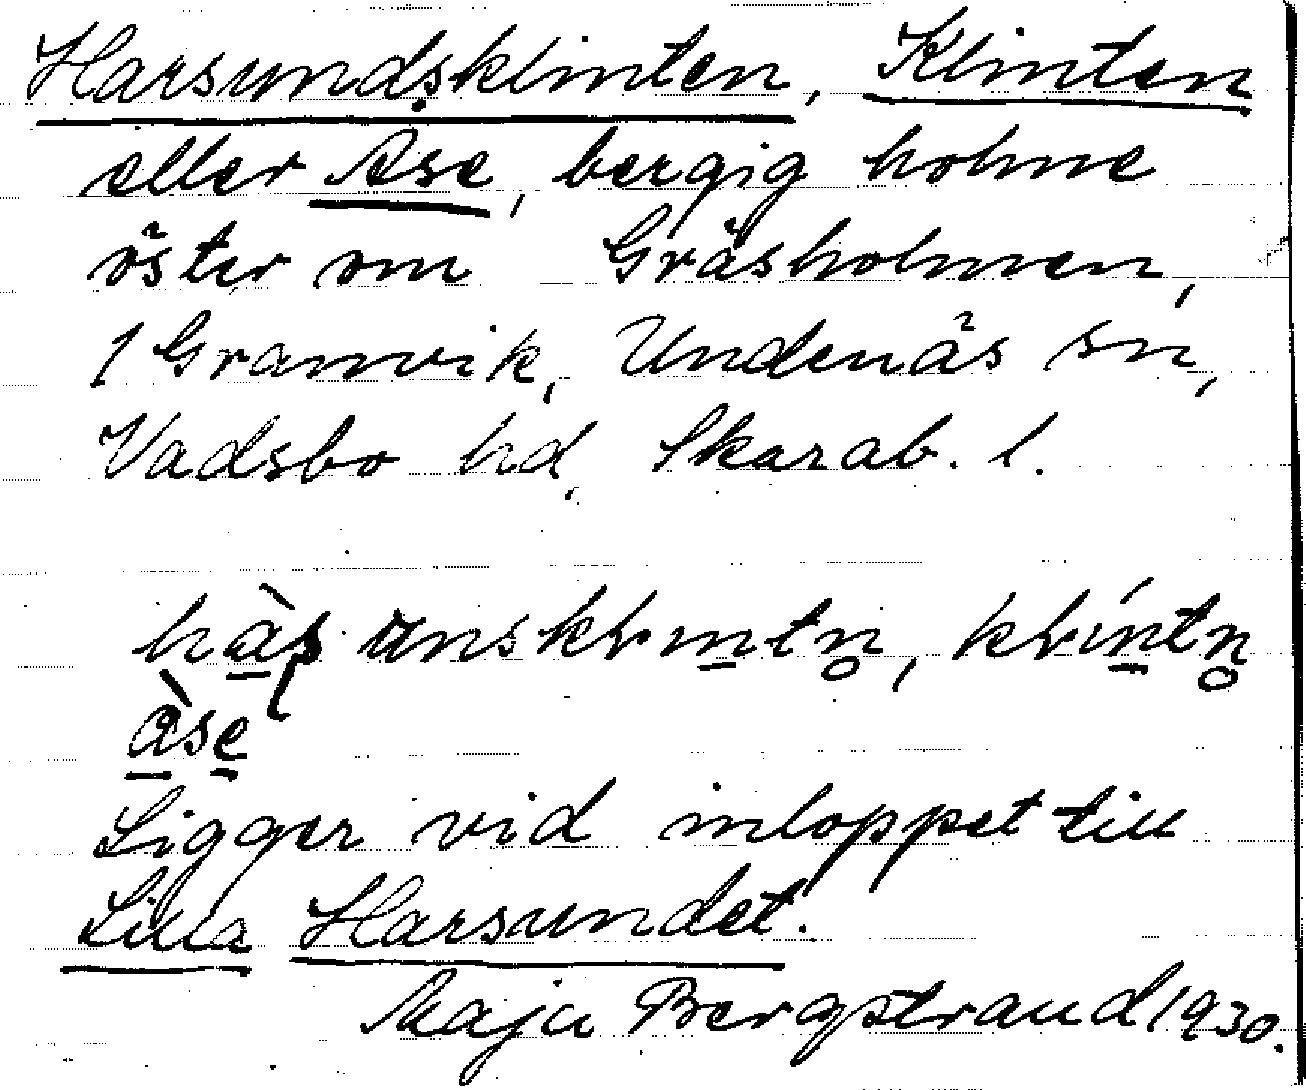 Harsundsklinten, Klinten
eller Åse, bergig holme
öster om Gräsholmen,
1 Granvik, Undenäs sn,
Vadsbo hd, Skarab. l.
klintn̥
àse
Ligger vid inloppet till
Lilla Harsundet.
Maja Bergstrand 1930.